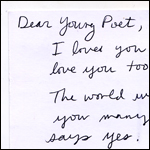 Dear Young Poet,
I loved you
love you too
The world
you many
says yes.